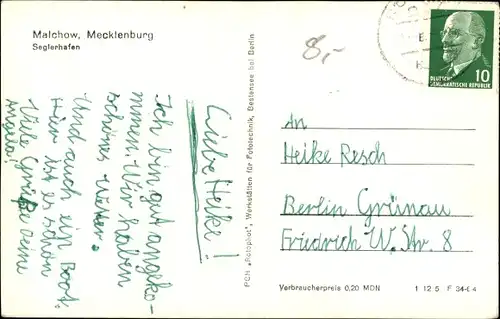 Malchow, Mecklenburg
Seglerhafen
8,-
DEUTSCHE
DEMOKRATISCHE REPUBLIK
10
Liebe Heike!
Ich bin gut angeko-
mmen. Wir haben
schönes Wetter.
Und auch ein Boot.
Hier ist es schön
Viele Grüße deine
Angela!
PGH „Rotophot“, Werkstätten für Fototechnik, Bestensee bei Berlin
An
Heike Resch
Berlin Grünau
Friedrich W. Str. 8
Verbraucherpreis 0,20 MDN
1 12 5